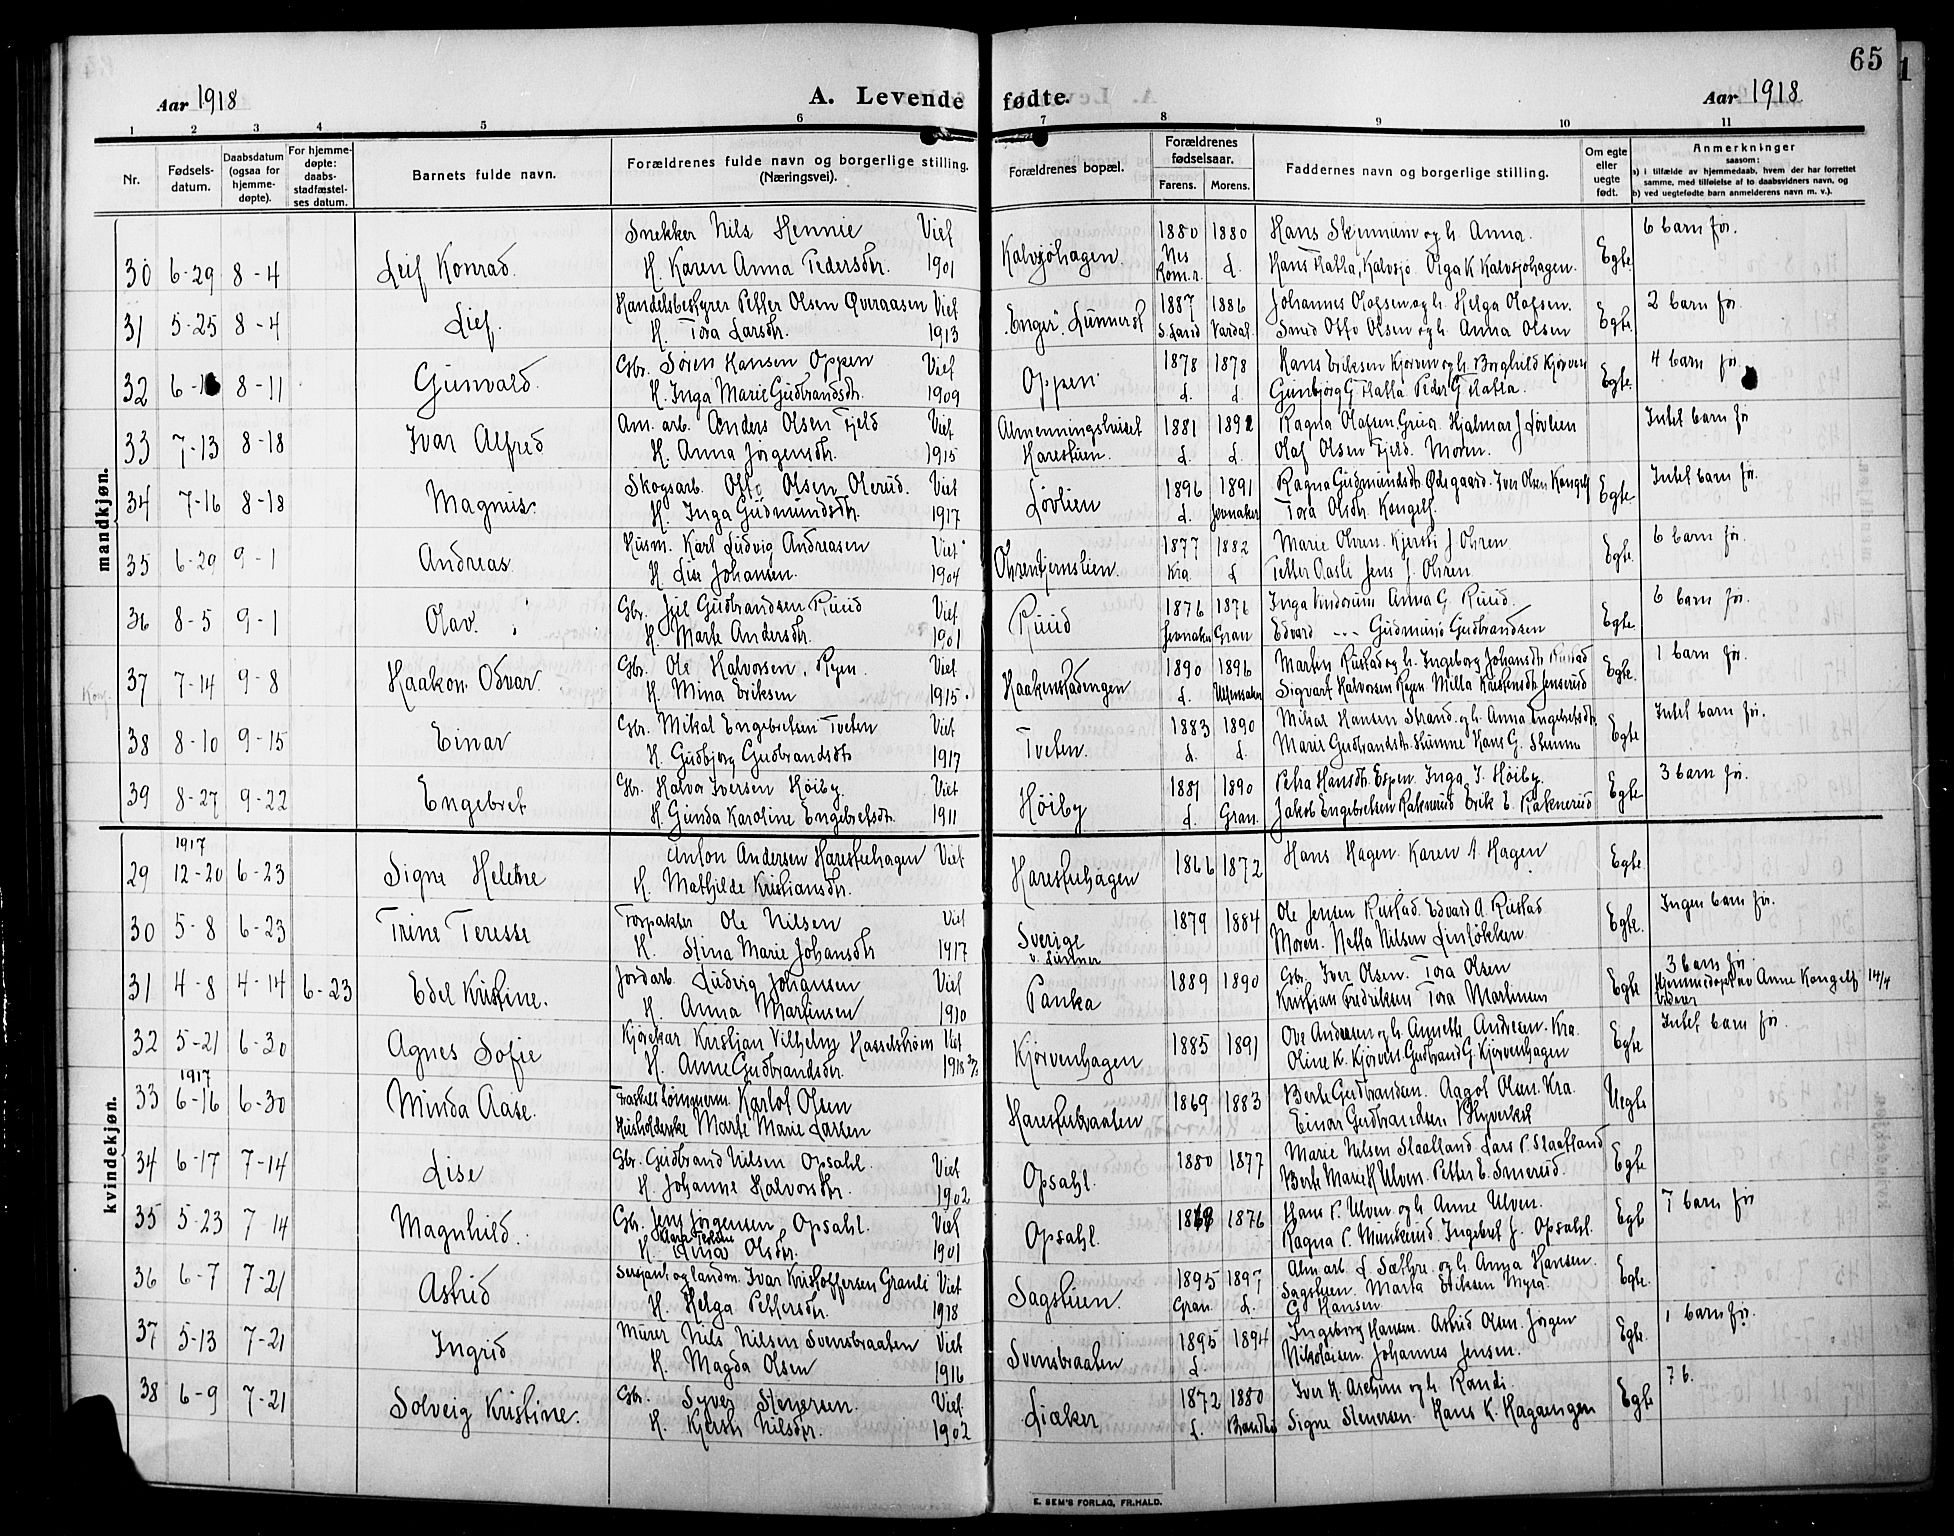 65
Aar 1918
A. Levende
fødte.
Aar 1918
1 2 3 4 5 6 7 8 9 10 11
Nr.
Fødsels-
datum.
Daabsdatum
(ogsaa for
hjemme-
døpte).
For hjemme-
døpte:
daabs-
stadfæstel-
ses datum.
Barnets fulde navn.
Forældrenes fulde navn og borgerlige stilling.
(Næringsvei).
Forældrenes bopæl.
Forældrenes
fødselsaar.
Farens. Morens.
Faddernes navn og borgerlige stilling.
Om egte
eller
uegte
født.
Anmerkninger
saasom:
a) i tilfælde av hjemmedaab, hvem der har forrettet
samme, med tilføielse af to daabsvidners navn, og
b) ved uegtefødte barn anmelderens navn m. v.).
mandkjøn.
30 6-29 8-4 Leif Konrad.
Snekker Nils Hennie Viet
H. Karen Anna Pedersdtr. 1901
Kalvsjøhagen 1880 1880
Nes Rom.r. L.
Hans Skjennum og h. Anna.
Hans Flatla, Kalvsjø. Olga K Kalvsjøhagen.
Egte 6 barn før.
31 5-25 8-4 Lief.
Handelsbestyrer Petter Olsen Øveraasen Viet
H. Tora Larsdtr. 1913
"Enger". Lunner st 1887 1886
S Land Vardal.
Johannes Olafsen og h. Helga Olafsen.
Smed Otto Olsen og h. Anna Olsen
Egte. 2 barn før.
32 8-11 Gunvald.
Gbr. Søren Hansen Oppen Viet
H. Inga Marie Gudbrandsdtr. 1909
Oppen 1878 1878
L. L.
Hans Eriksen Kjørven og h. Borghild Kjørven
Gunbjørg G Flatla Peder G Flatla.
Egte. 4 barn før.
33 7-13 8-18 Ivar Alfred
Am. arb. Anders Olsen Fjeld Viet
H. Anna Jørgensdtr. 1915
Almenningshuset
Harestuen. 1881 1892
L. L.
Ragna Olafsen, Grua, Hjalmar J Løvlien
Olaf Olsen Fjeld. Moren.
Intet barn før
34 7-16 8-18 Magnus.
Skogsarb. Otto Olsen Olerud. Viet
H. Inga Gudmundsdtr. 1917
Løvlien 1896 1891
L. Jevnaker
Ragna Gudmundsdt Ødegaard. Iver Olsen Kongelf
Tora Olsdtr. Kongelf.
Egte Intet barn før.
35 6-29 9-1 Andreas.
Husm. Karl Ludvig Andreasen Viet
H. Lise Johansen. 1904
Ohrentjernslien. 1877 1882
Kra L
Marie Ohren. Kjersti J Ohren
Petter Aasli Jens J. Ohren
Egte. 6 barn før.
36 8-5 9-1 Olav.
Gbr. Juel Gudbrandsen Ruud Viet
H. Marte Andersdtr. 1901
Ruud 1876 1876
Jevnaker Gran
Inga Anna G. Ruud.
Edvard --- Gudmund Gudbrandsen
Egte. 6 barn før.
37 7-14 9-8 Haakon Odvar.
Gbr. Ole Halvorsen, Ryen. Viet
H. Mina Eriksen 1915
Haakenstadengen 1890 1896
L. Ullensaker
Martin Rustad og h. Ingeborg Johansdtr Rustad
Sigvart Halvorsen Ryen Milla Kristensdtr Jenserud
Egte. 1 barn før.
38 8-10 9-15 Einar
Gbr. Mikal Engebretsen Tveten Viet
H. Gudbjørg Gudbrandsdtr 1917
Tveten. 1883 1890
L. L.
Mikal Hansen Strand. og h. Anna Engebretsdtr
Marie Gudbrandsdtr. Hans G.
Egte Intet barn før.
39 8-27 9-22 Engebret
Gbr. Halvor Iversen Høiby. Viet
H. Gunda Karoline Engebretsdtr. 1911
Høiby 1881 1890
L. Gran.
Petra Hansdtr. Espen. Inga I. Høiby.
Jakob Engebretsen Raknerud Erik E. Raknerud
Egte 3 barn før.
kvindekjøn.
29 1917 12-20 6-23 Signe Helene
Anton Andersen Harestuehagen Viet
H. Mathilde Kristiansdtr.
Harestuehagen 1866 1872
Hans Hagen. Karen A. Hagen
Egte.
30 5-8 6-23 Trine Teresse
Forpakter Ole Nilsen Viet
H. Stina Marie Johansdtr 1917
Sverige
v. Lunner 1879 1884
Ole Jensen Rustad. Edvard A. Rustad
Moren. Netta Nilsen Linløkken
Egte. Ingen barn før.
31 4-8 4-14 6-23 Edel Kristine.
Jordarb. Ludvig Johansen Viet
H. Anna Martinsen 1910
Panka 1889 1890
Gbr. Iver Olsen. Tora Olsen
Kristian Fredriksen Tora Martinsen
Egte 3 barn før.
Hjemmedøpt av Anne Kongelf 14/4
32 5-21 6-30 Agnes Sofie
Kjørekar Kristian Vilhelm Hasselstrøm Viet
H. Anne Gudbrandsdtr. 1918
Kjørvenhagen 1885 1891
Ove Andresen og h. Annette Andresen. Kra.
Oline K. Kjørven. Gudbrand G. Kjørvenhagen
Egte Intet barn før.
33 1917 6-16 6-30 Minda Aase.
Fraskelt tømmerm. Karlot Olsen
Husholderske Marte Marie Larsen
Harestubraaten 1869 1883
Berte Gudbrandsen. Aagot Olsen. Kra.
Einar Gudbrandsen
Uegte
34 6-17 7-14 Lise
Gbr. Gudbrand Nilsen Opsahl. Viet
H. Johanne Halvorsdtr. 1902
Opsahl. 1880 1877
Marie Nilsen Slaatland Lars P. Slaatland
Berte Marie K Ulven. Petter E. Smerud.
Egte
35 5-23 7-14 Magnhild.
Gbr. Jens Jørgensen Opsahl. Viet
H. Olsdtr. 1901
Opsahl. 1876
Hans P. Ulven og h. Anne Ulven.
Ragna P. Munkerud. Ingebret J. Opsahl.
Egte 7 barn før
36 6-7 7-21 Astrid
Sersjant og landm. Ivar Kristoffersen Granli Viet
H. Helga Pettersdtr. 1918
Sagstuen. 1895 1897
Gran. L.
Alm arb. L. Sæthre. og h. Anna Hansen.
Sagstuen. Marta Eriksen Myra
G. Hansen
Egte.
37 5-13 7-21 Ingrid
Murer Nils Nilsen Svensbraaten Viet
H. Magda Olsen 1916
Svensbraaten 1895 1894
L.
Ingeborg Hansen. Astrid Olsen. Jørgen
Nikolaisen. Johannes Jensen.
Egte. 1 barn før.
38 6-9 7-21 Solveig Kristine.
Gbr. Syver Stenersen. Viet
H. Kjersti Nilsdtr. 1902
Liaker 1872 1880
L. Brandbu
Iver H. Aschjem og h. Randi.
Signe Stenersen. Hans K. Hagaengen
Egte 7 b.
E. SEM'S FORLAG, FR.HALD.